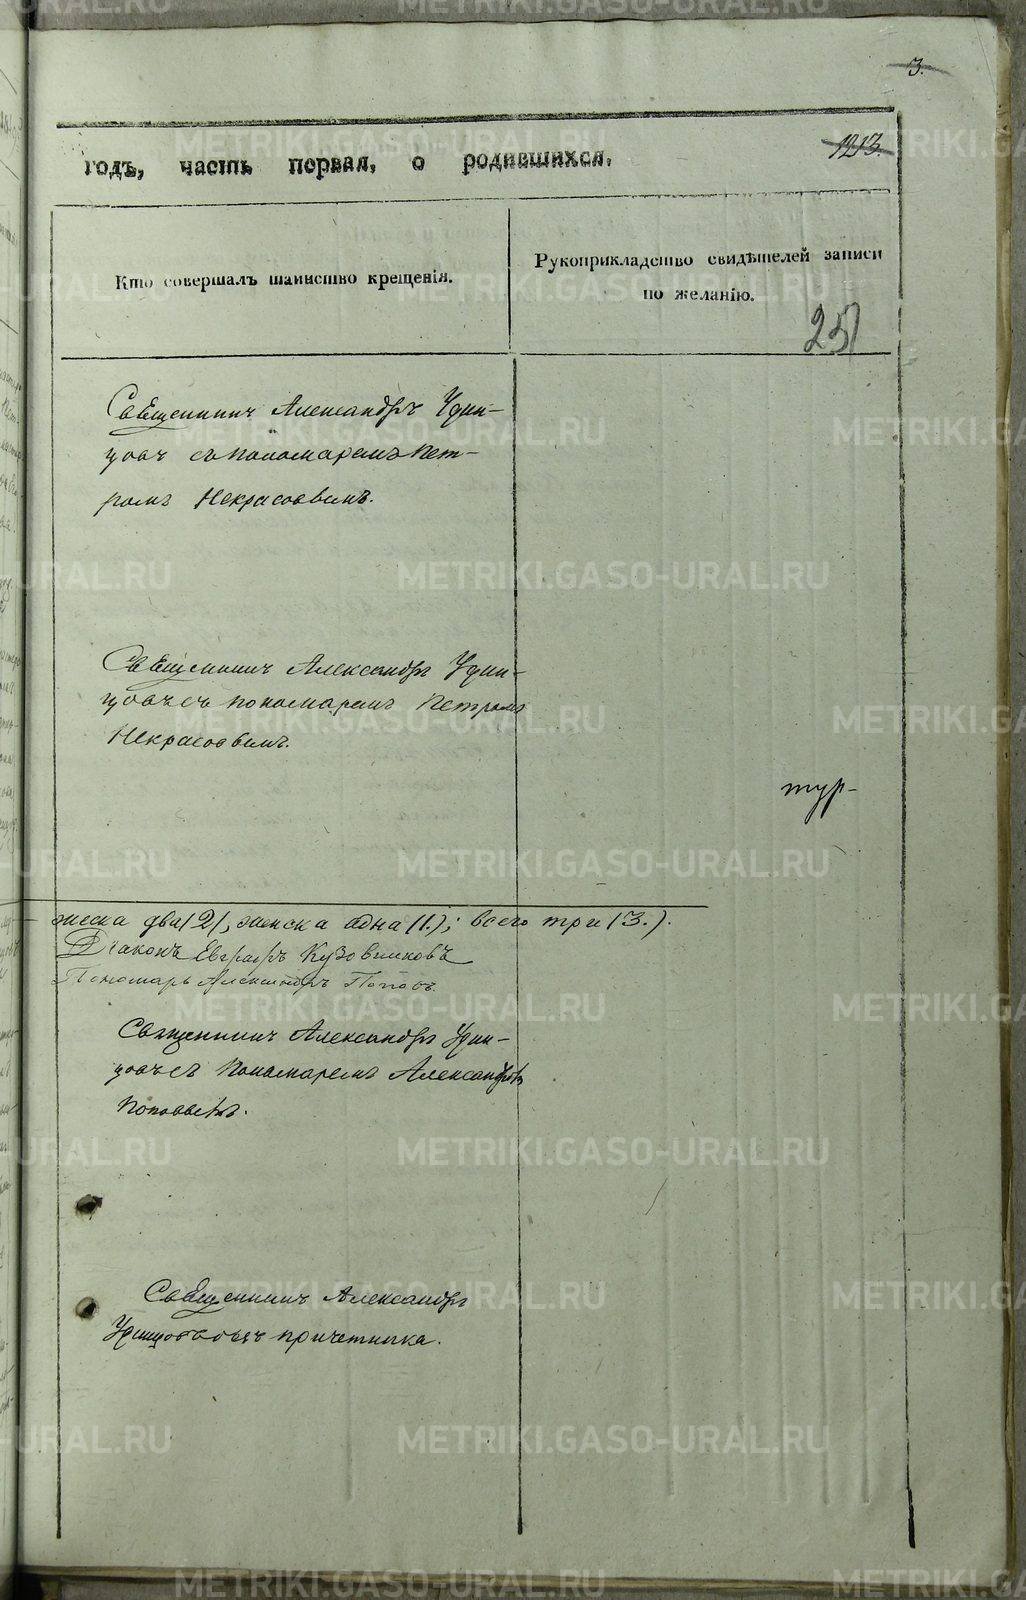 3.
годъ, часть первая, о родившихся.
1213.
Кто совершалъ таинство крещенія.
Рукоприкладство свидѣтелей записи
по желанію.
251
Священникъ Александръ Удин-
цовъ съ пономаремъ Пет-
ромъ Некрасовымъ.
Священникъ Александръ Удин-
цовъ съ пономаремъ Петромъ
Некрасовымъ.
тур-
жеска два (2), женска одна (1.); всего три (3.).
Діаконъ Евграфъ Кузовниковъ
Пономарь Александръ Поповъ.
Священникъ Александръ Удин-
цовъ съ Пономаремъ Александромъ
Поповымъ.
Священникъ Александръ
Удинцовъ безъ причетника.
METRIKI.GASO-URAL.RU